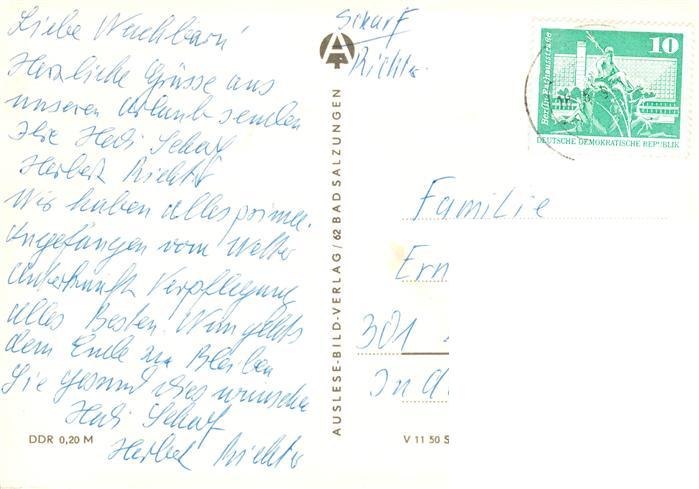 Liebe Nachbarn!
Herzliche Grüsse aus
unseren Urlaub senden
Ihre Hedi Scharf
Herbert Richter
Wir haben alles prima.
Angefangen vom Wetter
Unterkunft Verpflegung
alles Besten. Nun gehts
dem Ende zu Bleiben
Sie gesund dies wünschen
Hedi Scharf
Herbert Richter
DDR 0,20 M
AUSLESE-BILD-VERLAG / 62 BAD SALZUNGEN
Scharf
Richter
Berlin-Rathausstraße
10
DEUTSCHE DEMOKRATISCHE REPUBLIK
Familie
Ern
301
In d
V 11 50 S